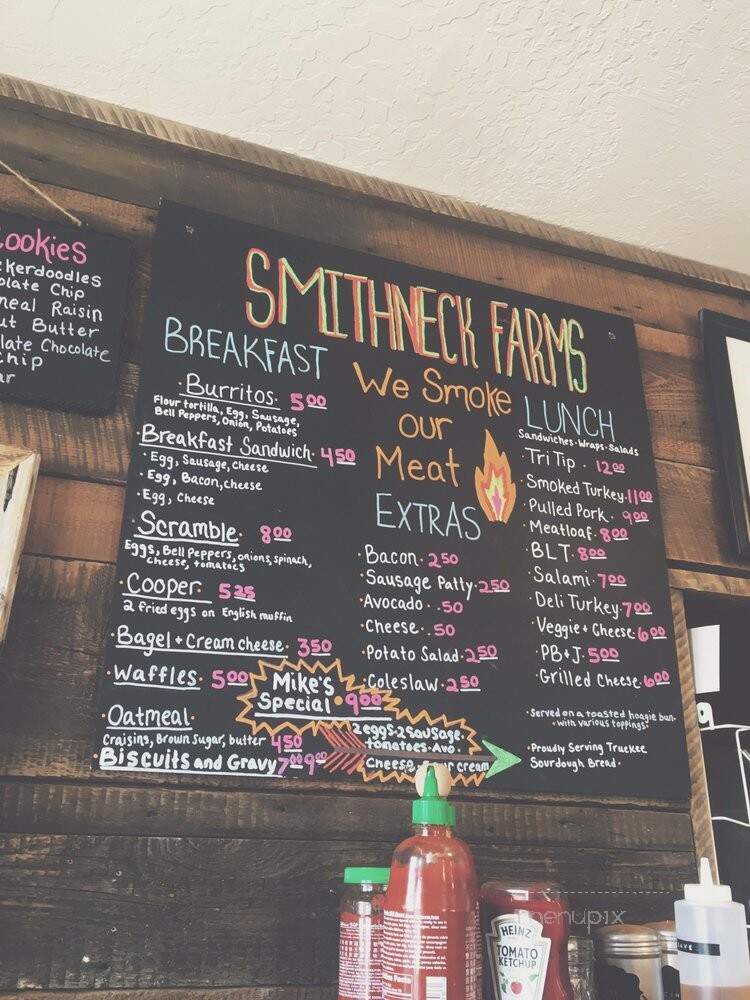 ookies
kerdoodles
olate Chip
meal Raisin
ut Butter
late Chocolate
chip
ar
SMITHNECK FARMS
BREAKFAST
Burritos 5.00
Flour tortilla, Egg, Sausage,
Bell Peppers, Onion, Potatoes
Breakfast Sandwich 4.50
• Egg, Sausage, cheese
• Egg, Bacon, cheese
• Egg, Cheese
Scramble 8.00
Eggs, Bell Peppers, onions, spinach,
cheese, tomatoes
Cooper 5.25
2 fried eggs on English muffin
Bagel + Cream cheese 3.50
Waffles 5.00
Oatmeal
Craisins, Brown Sugar, butter 4.50
Biscuits and Gravy 7.00 9.00
We Smoke
our
Meat
EXTRAS
Bacon 2.50
Sausage Patty 2.50
Avocado .50
Cheese .50
Potato Salad 2.50
Coleslaw 2.50
Mike's
Special 9.00
2 eggs-2 sausage
tomatoes-Avo
Cheese, cream
LUNCH
Sandwiches-Wraps-Salads
Tri Tip 12.00
Smoked Turkey 11.00
Pulled Pork 9.00
Meatloaf 8.00
BLT 8.00
Salami 7.00
Deli Turkey 7.00
Veggie + Cheese 6.00
PB+J 5.00
Grilled Cheese 6.00
• Served on a toasted hoagie bun
• with various toppings •
• Proudly Serving Truckee
Sourdough Bread •
HEINZ
TOMATO
KETCHUP
menupix